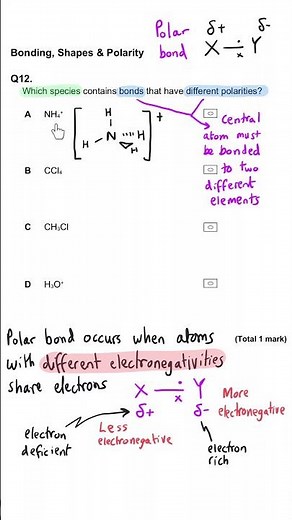 Polar bond
δ+ δ-
X ∸ₓ Y
Bonding, Shapes & Polarity
Q12.
Which species contains bonds that have different polarities?
A NH₄⁺
H
H N H
H
+
central
atom must
be bonded
to two
different
elements
B CCl₄
C CH₃Cl
D H₃O⁺
(Total 1 mark)
Polar bond occurs when atoms
with different electronegativities
share electrons
X ∸ₓ Y
δ+ δ-
More
electronegative
Less
electronegative
electron
deficient
electron
rich